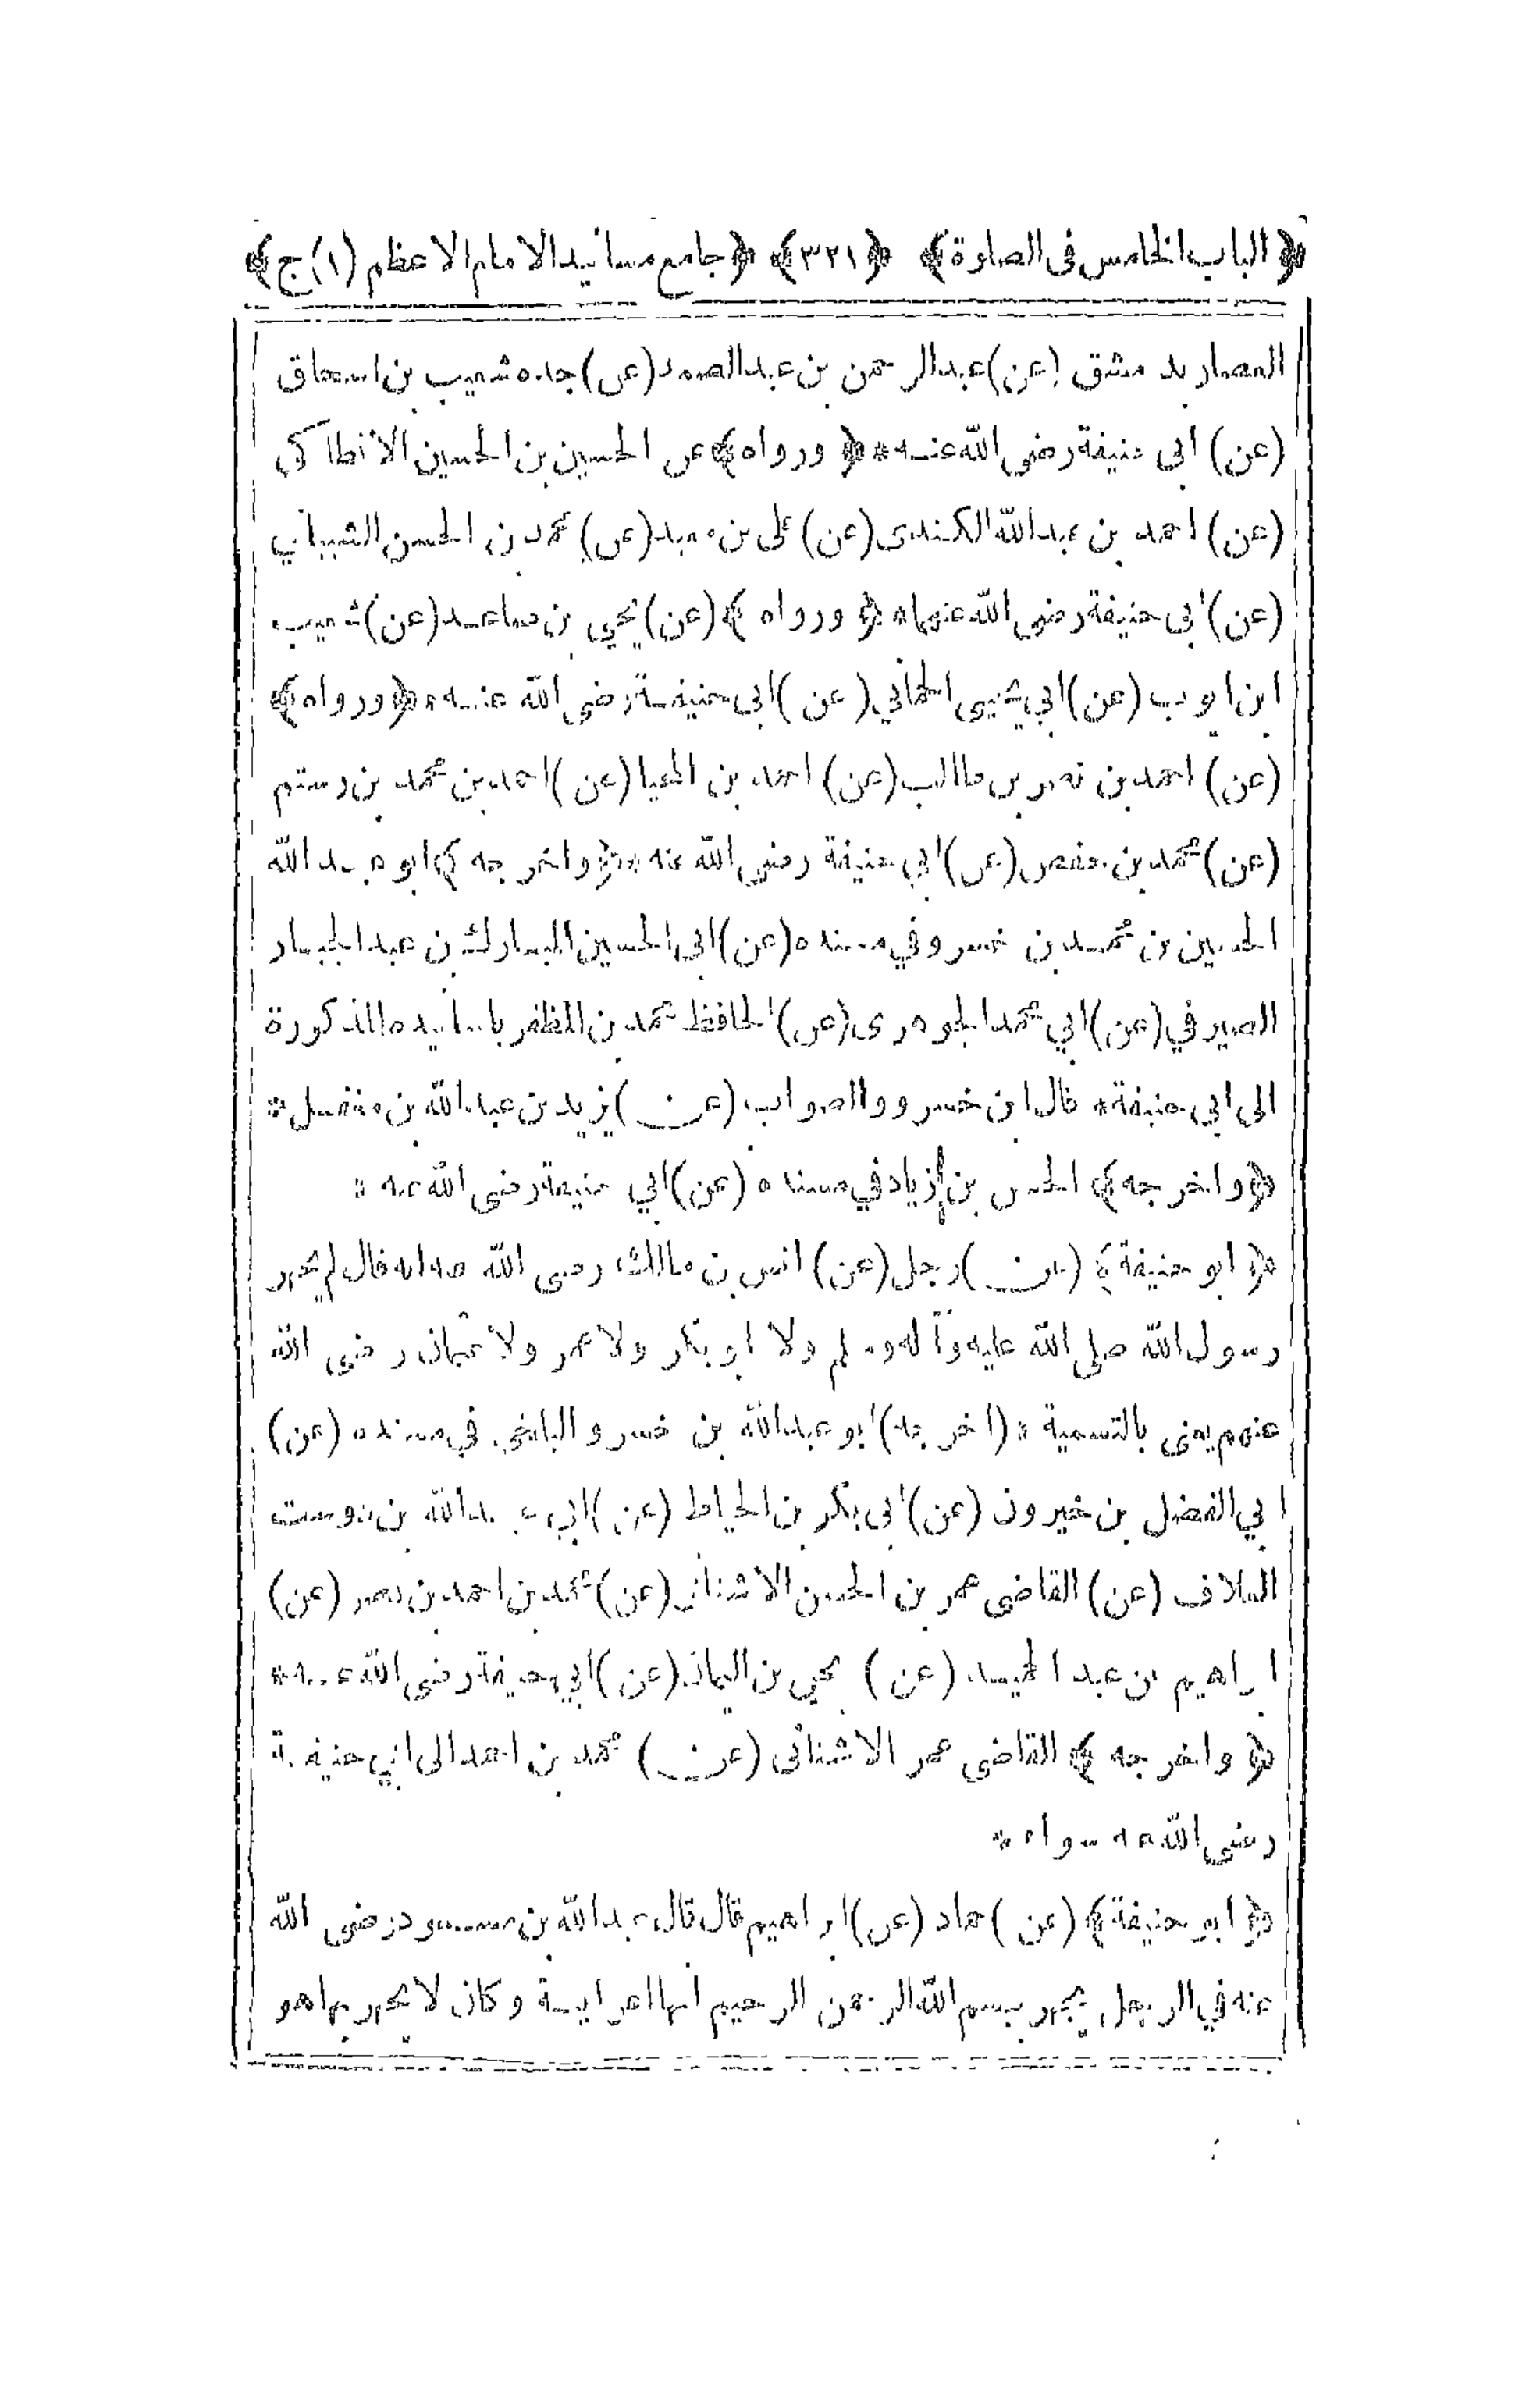 ﴿ الباب الخامس فى الصلوة ﴾ ﴿ ٣٢١ ﴾ ﴿ جامع مسانيد الامام الاعظم (١) ج ﴾
العصار بد مشق (عن) عبد الرحمن بن عبد الصمد (عن) جده شعيب بن اسحاق
(عن) ابى حنيفة رضى الله عنه * ﴿ ورواه ﴾ عن الحسين بن الحسين الانطاكى
(عن) احمد بن عبد الله الكندى (عن) على بن معبد (عن) محمد بن الحسن الشيبانى
(عن) ابى حنيفة رضى الله عنهما * ﴿ ورواه ﴾ (عن) يحيى بن صاعد (عن) شعيب
ابن ايوب (عن) ابي يحيى الحمانى (عن) ابى حنيفة رضى الله عنه * ﴿ ورواه ﴾
(عن) احمد بن نصر بن طالب (عن) احمد بن المحيا (عن) احمد بن محمد بن رستم
(عن) محمد بن حفص (عن) ابي حنيفة رضى الله عنه * ﴿ واخرجه ﴾ ابو عبد الله
الحسين بن محمد بن خسرو في مسنده (عن) ابى الحسين المبارك بن عبد الجبار
الصيرفي (عن) ابي محمد الجوهرى (عن) الحافظ محمد بن المظفر باسانيده المذكورة
الى ابي حنيفة * قال ابن خسرو والصواب (عن) يزيد بن عبد الله بن مغفل *
﴿ واخرجه ﴾ الحسن بن زياد في مسنده (عن) ابي حنيفة رضى الله عنه *
﴿ ابو حنيفة ﴾ (عن) رجل (عن) انس بن مالك رضى الله عنه انه قال لم يجهر
رسول الله صلى الله عليه وآله وسلم ولا ابو بكر ولا عمر ولا عثمان رضى الله
عنهم يعنى بالتسمية * (اخرجه) ابو عبد الله بن خسرو البلخى في مسنده (عن)
ابي الفضل بن خيرون (عن) ابى بكر بن الخياط (عن) ابى عبد الله بن دوست
العلاف (عن) القاضى عمر بن الحسن الاشنانى (عن) محمد بن احمد بن نصر (عن)
ابراهيم بن عبد الحميد (عن) يحيى بن اليمان (عن) ابي حنيفة رضى الله عنه *
﴿ واخرجه ﴾ القاضى عمر الاشنانى (عن) محمد بن احمد الى ابي حنيفة
رضى الله عنه سواء *
﴿ ابو حنيفة ﴾ (عن) حماد (عن) ابراهيم قال قال عبد الله بن مسعود رضى الله
عنه في الرجل يجهر ببسم الله الرحمن الرحيم انها اعرابية وكان لا يجهر بها هو